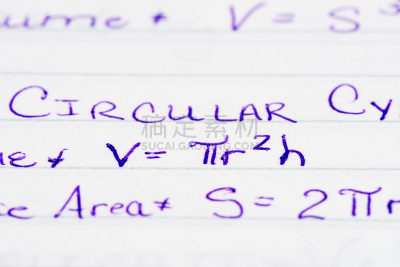 ume * V = S³
CIRCULAR CY
e * V = πr²h
ce Area * S = 2πr
稿定素材
SUCAI.GAODING.COM